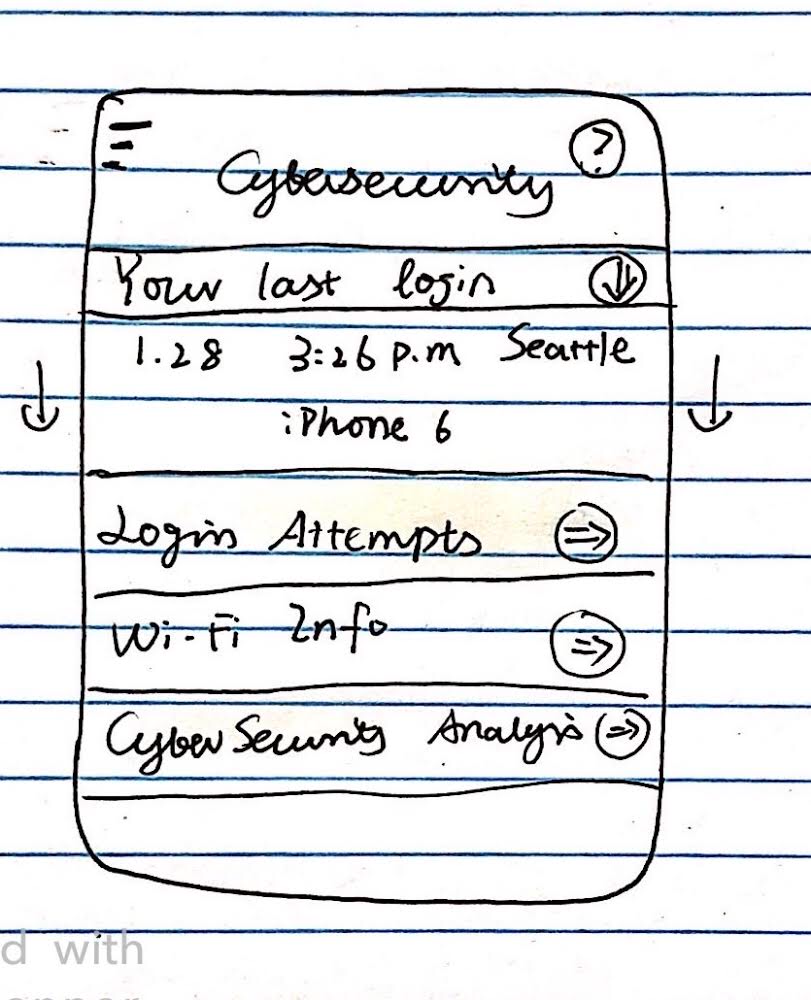 ?
Cybersecurity
Your last login
1.28 3:26 p.m Seattle
iPhone 6
Login Attempts
Wi-Fi Info
CyberSecurity Analysis
d with